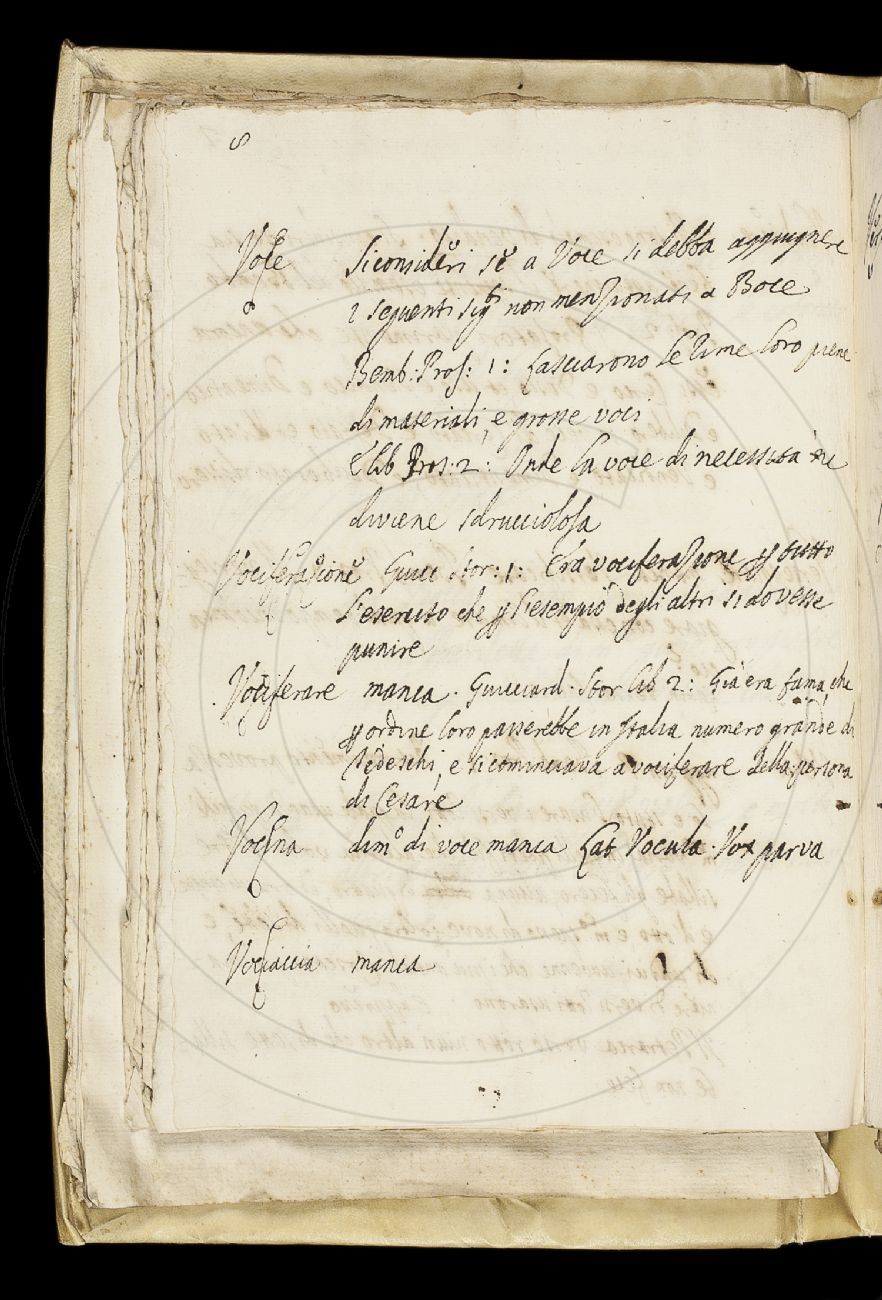 8
Voce Si consideri se a Voce si debba aggiugnere
i seguenti sig.ti non menzionati a Boce
Bemb: Pros: 1: Lasciarono le Rime loro piene
di materiali, e grosse voci
E lib Pros: 2: Onde la voce di necessità ne
diviene sdrucciolosa
Vociferazione Guicc Stor: 1: Era vociferazione p tutto
l'esercito che p l'esempio degli altri si dovesse
punire
Vociferare manca. Guicciard. Stor lib 2: Già era fama, che
p ordine loro passerebbe in Italia numero grande di
Tedeschi, e si cominciava a vociferare della persona
di Cesare
Vocina dim.o di voce manca Lat Vocula. Vox parva
Vociaccia manca